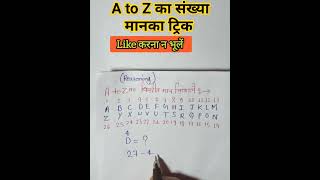 A to Z का संख्या
मानका ट्रिक
Like करना न भूलें
(Reasoning)
A to Z का
1 2 3 4 5 6 7 8 9 10 11 12 13
A B C D E F G H I J K L M
Z Y X W V U T S R Q P O N
26 25 24 23 22 21 20 19 18 17 16 15 14
4
D = ?
27 - 4